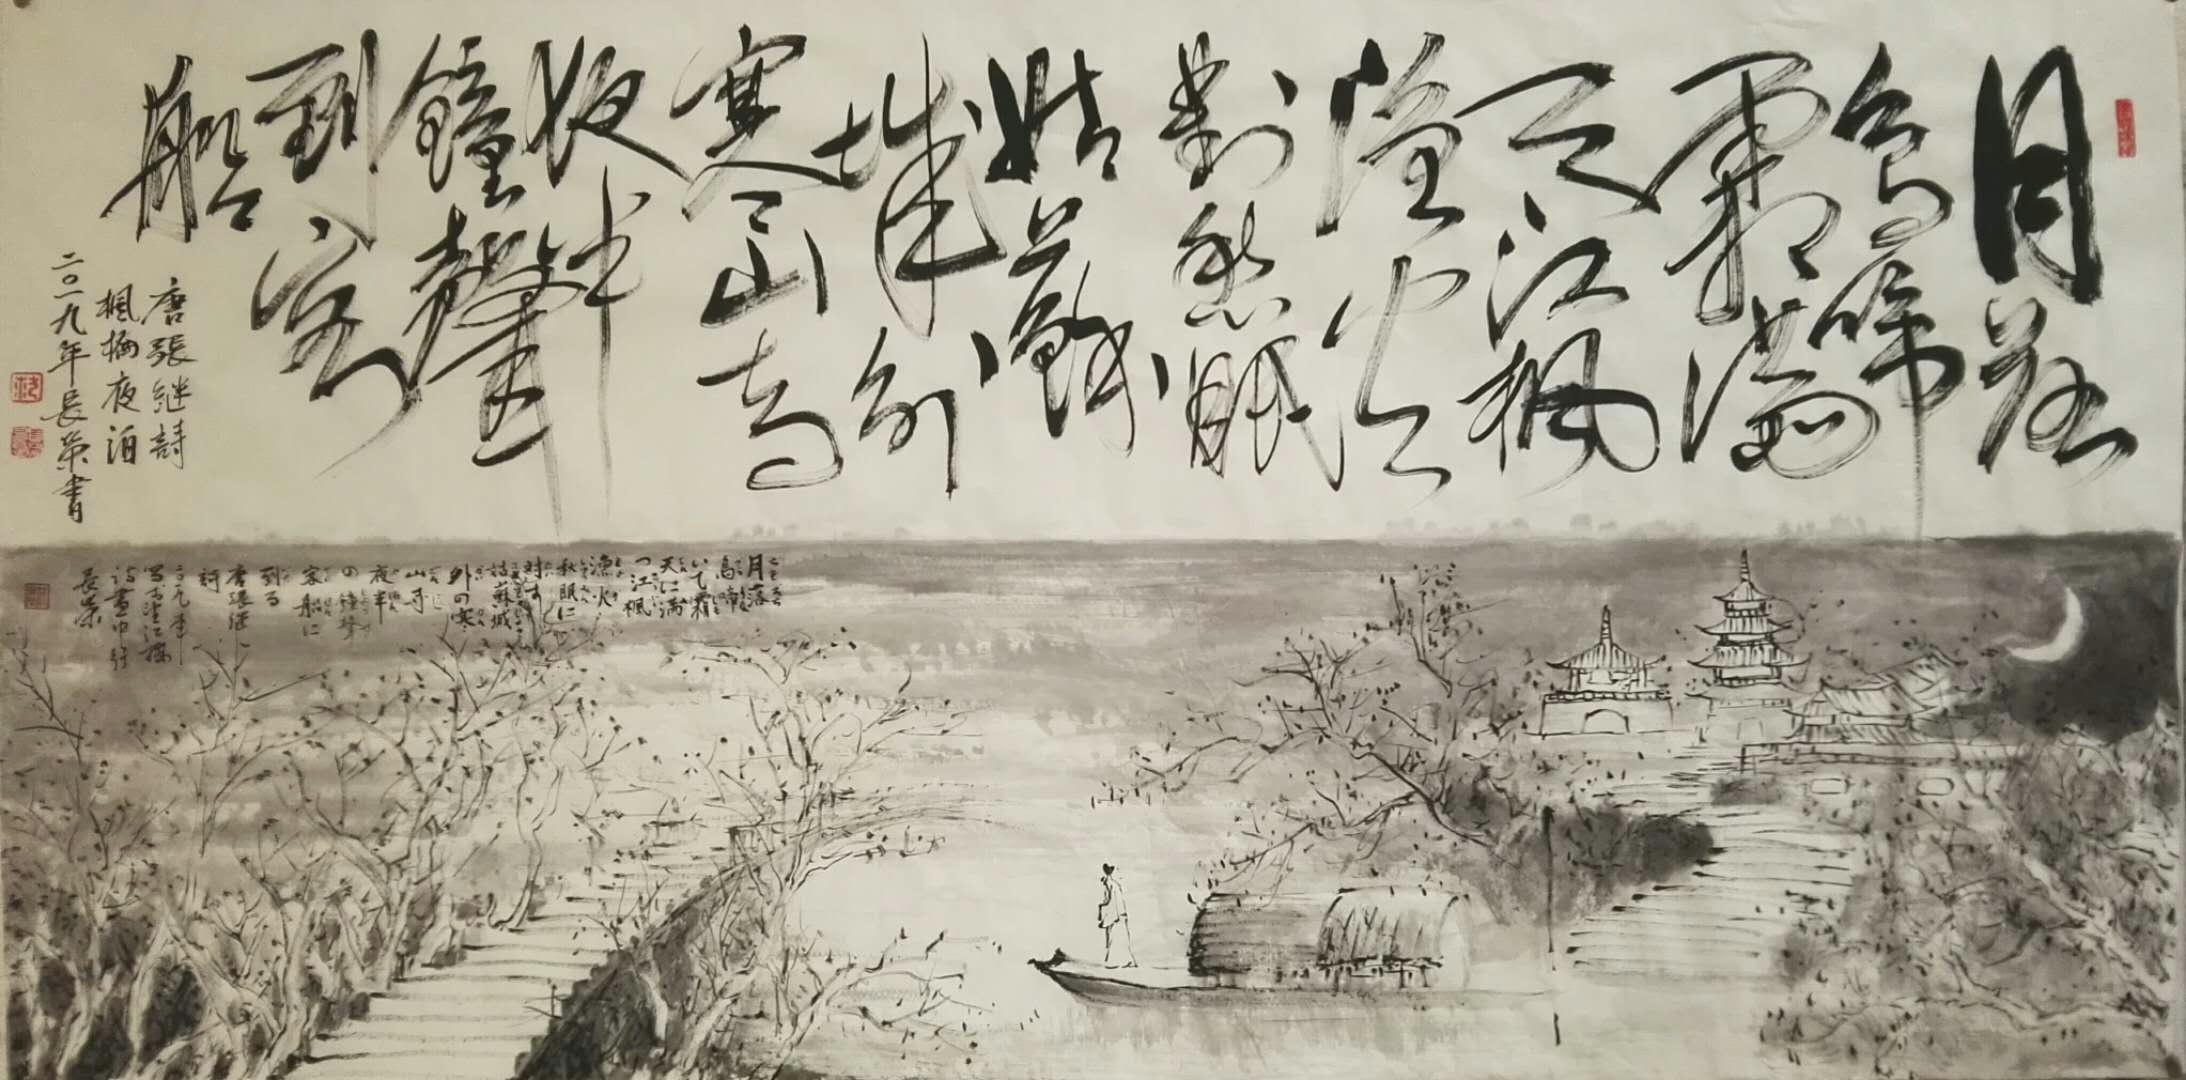 月落
烏啼
霜滿
天江楓
漁火
對愁眠
姑蘇
城外
寒山寺
夜半
鐘聲
到客
船
唐張継詩
楓橋夜泊
二〇一九年長榮書
月落
烏啼
いて霜
天に満
つ江楓
漁火
秋眠に
対す
姑蘇城
外の寒
山寺
夜半
の鐘聲
客船に
到る
唐張継
二〇一九年
長榮